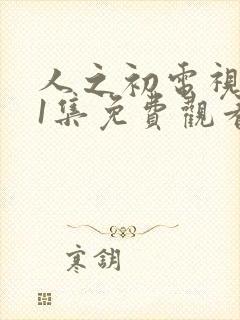 人之初電視
1集免費觀看
寒鈅